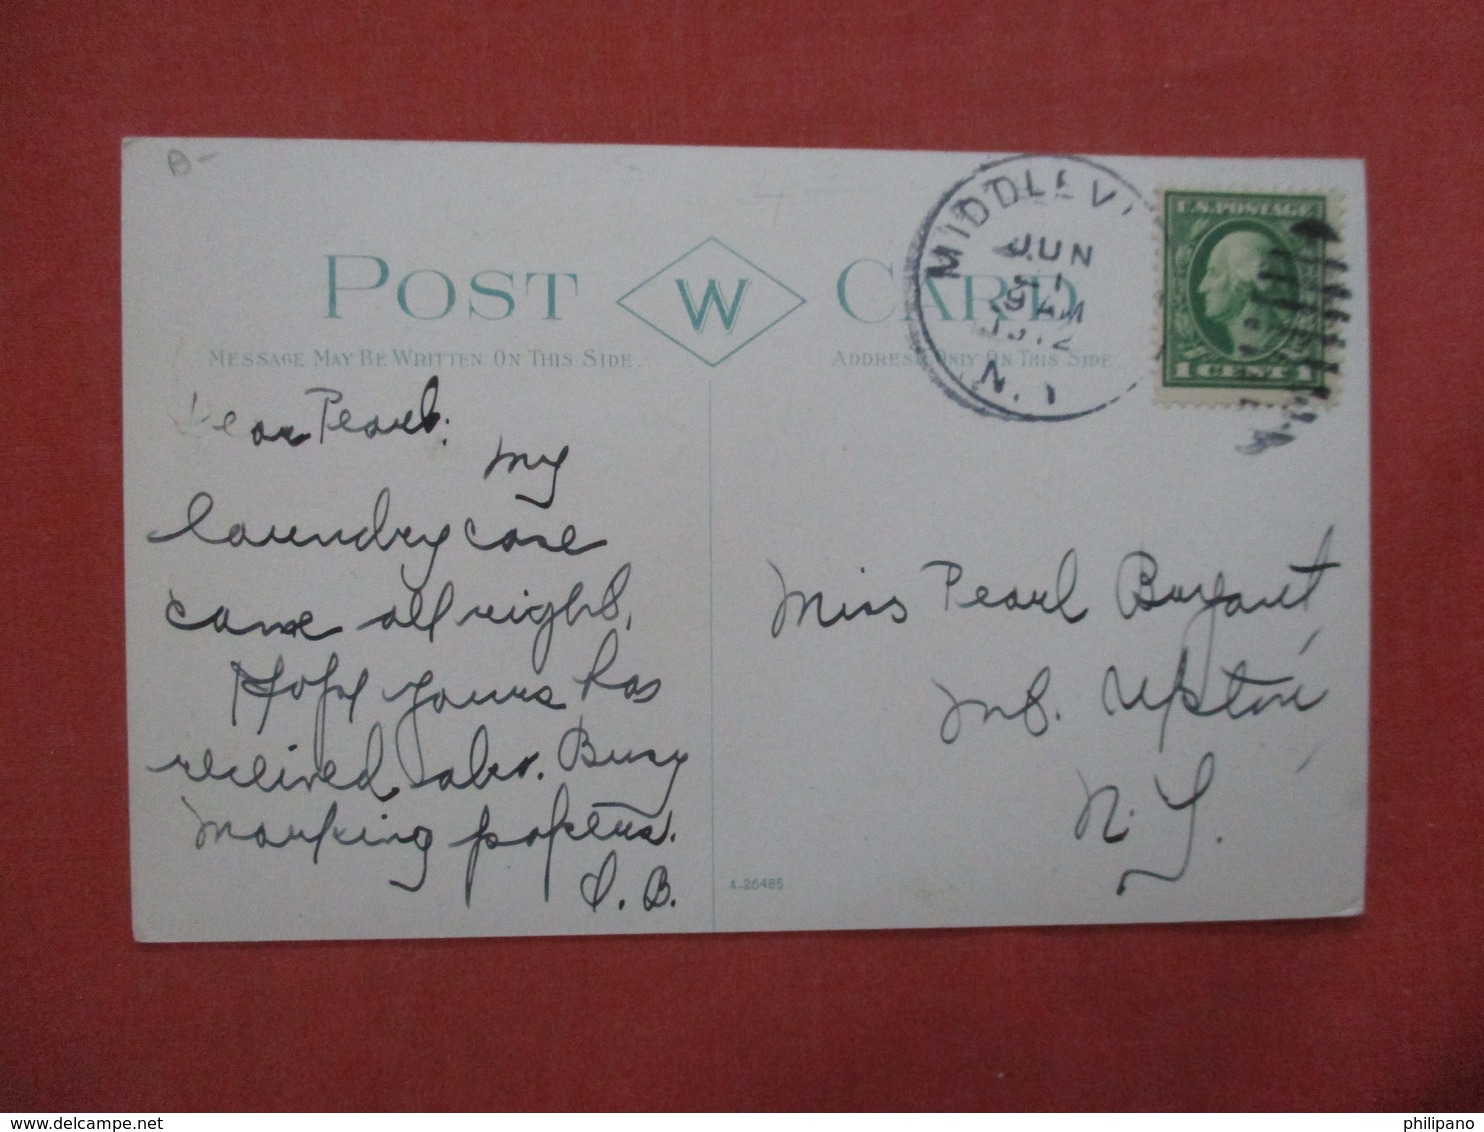 B-
POST W CARD
MESSAGE MAY BE WRITTEN ON THIS SIDE
ADDRESS ONLY ON THIS SIDE
MIDDLEVI
JUN
9 AM
1912
N.Y
U.S. POSTAGE
1 CENT 1
Dear Pearl:
My
laundry case
came all right,
Hope yours has
received also. Busy
marking papers.
I. B.
Miss Pearl Bryant
Mt. Upton
N.Y.
A-26485
delcampe.net
philipano